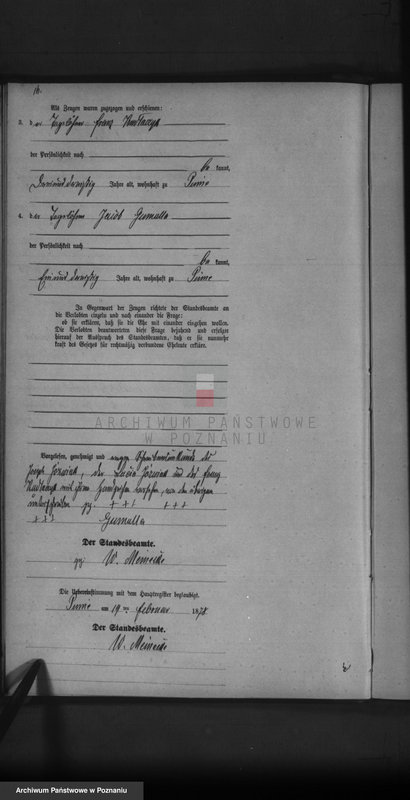 Als Zeugen waren zugezogen und erschienen:
3. der Tagelöhner Franz
der Persönlichkeit nach
be kannt,
Jahre alt, wohnhaft zu Pinne
4. der Tagelöhner Jacob Gumalla
der Persönlichkeit nach
be kannt,
Jahre alt, wohnhaft zu Pinne
In Gegenwart der Zeugen richtete der Standesbeamte an
die Verlobten einzeln und nach einander die Frage:
ob sie erklären, daß sie die Ehe mit einander eingehen wollen.
Die Verlobten beantworteten diese Frage bejahend und erfolgte
hierauf der Ausspruch des Standesbeamten, daß er sie nunmehr
kraft des Gesetzes für rechtmäßig verbundene Eheleute erkläre.
ARCHIWUM PAŃSTWOWE
W POZNANIU
Vorgelesen, genehmigt und wegen Schreibensunkunde des
Joseph, der und des Franz
mit ihren Handzeichen versehen, von den übrigen
unterschrieben gz. +++ +++
+++ Gumalla
Der Standesbeamte.
gz. W. Meinecke
Die Uebereinstimmung mit dem Hauptregister beglaubigt.
Pinne am 19ten Februar 1878
Der Standesbeamte.
W. Meinecke
Archiwum Państwowe w Poznaniu